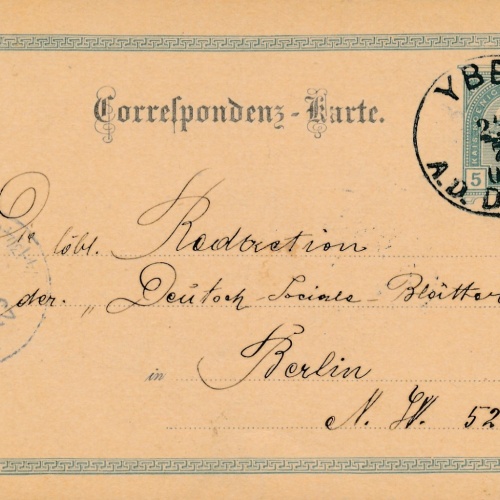 Correspondenz-Karte.
YBB
5
A.D. D
Die löbl. Redaction
der. „Deutsch-Socials-Blätter
in Berlin
N. W. 52